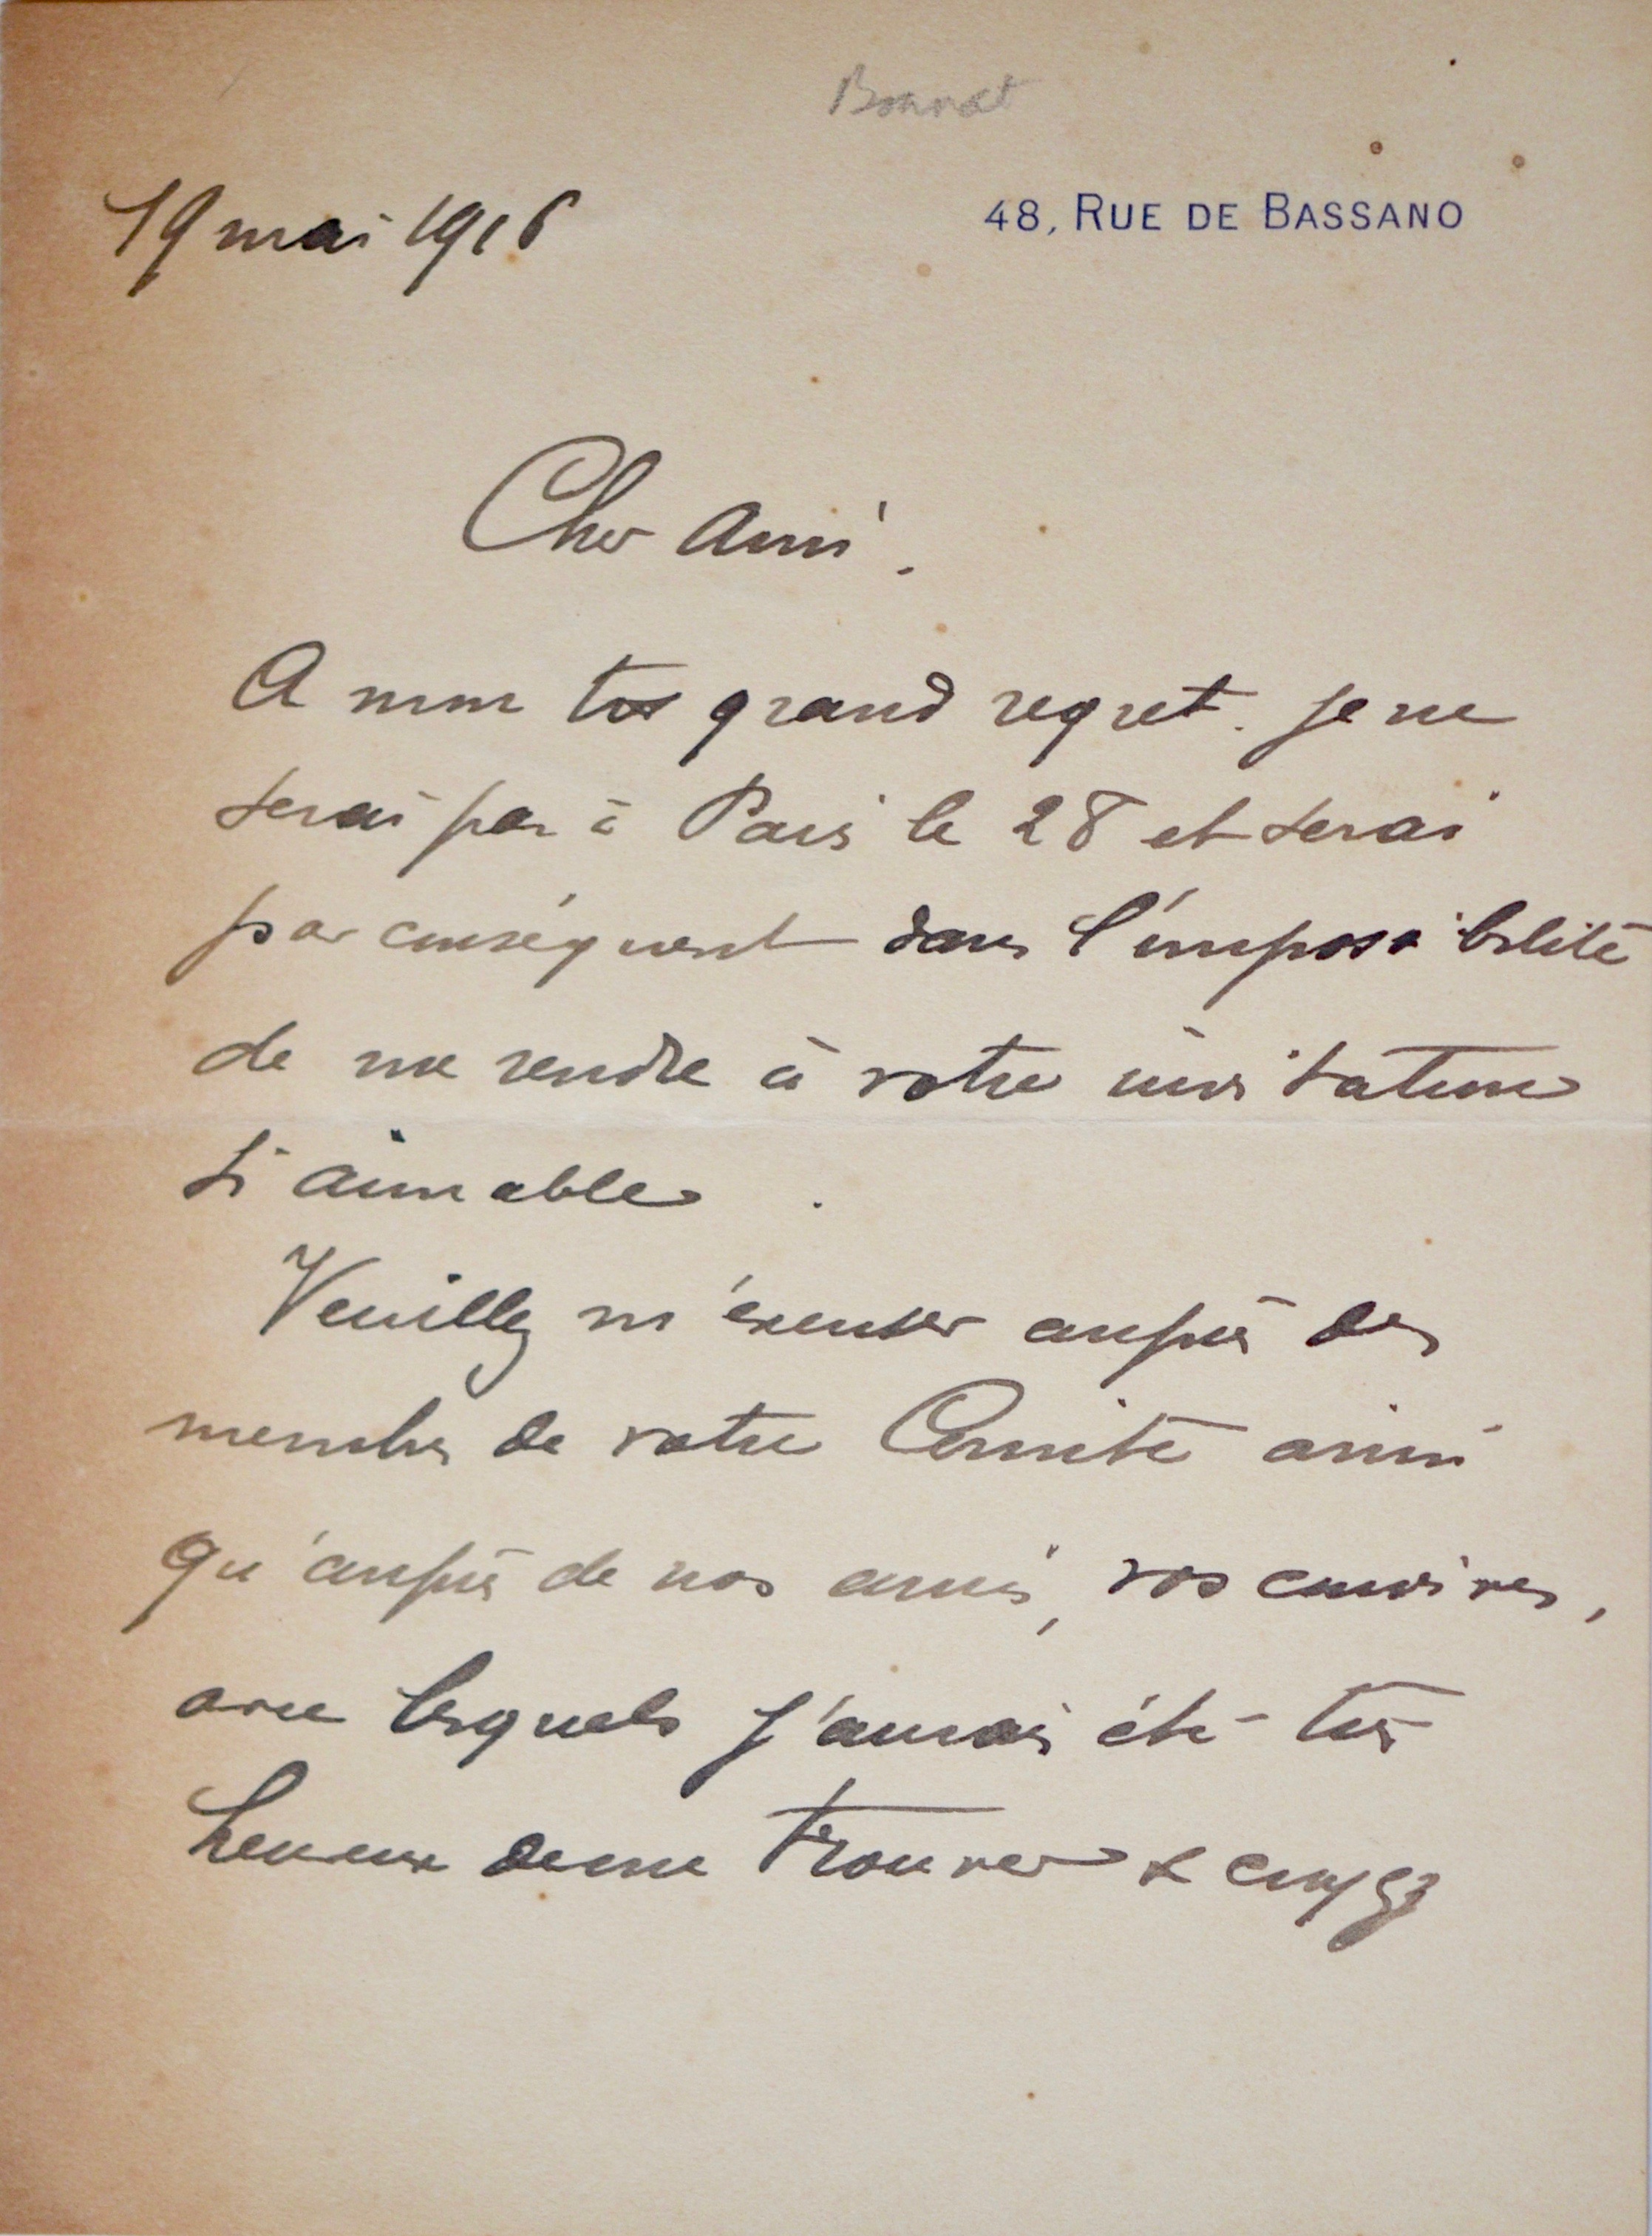 Bonnat
19 mai 1916
48, RUE DE BASSANO
Cher Ami.
A mon très grand regret. je ne
serai pas à Paris le 28 et serai
par conséquent dans l'impossibilité
de me rendre à votre invitation
si aimable.
Veuillez m'excuser auprès des
membres de votre Comité ainsi
qu'auprès de nos amis, vos convives,
avec lesquels j'aurais été très
heureux de me trouver &